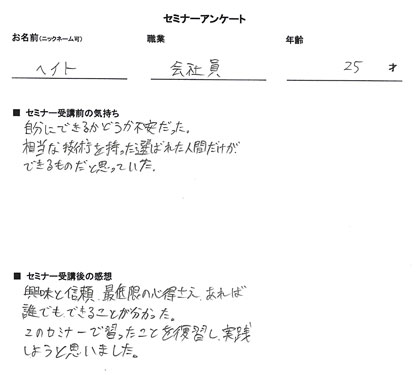 セミナーアンケート
お名前(ニックネーム可) 職業 年齢
ヘイト 会社員 25 才
■ セミナー受講前の気持ち
自分にできるかどうか不安だった。
相当な技術を持った選ばれた人間だけが
できるものだと思っていた。
■ セミナー受講後の感想
興味と信頼、最低限の心得さえ、あれば
誰でもできることが分かった。
このセミナーで習ったことを復習し、実践
しようと思いました。